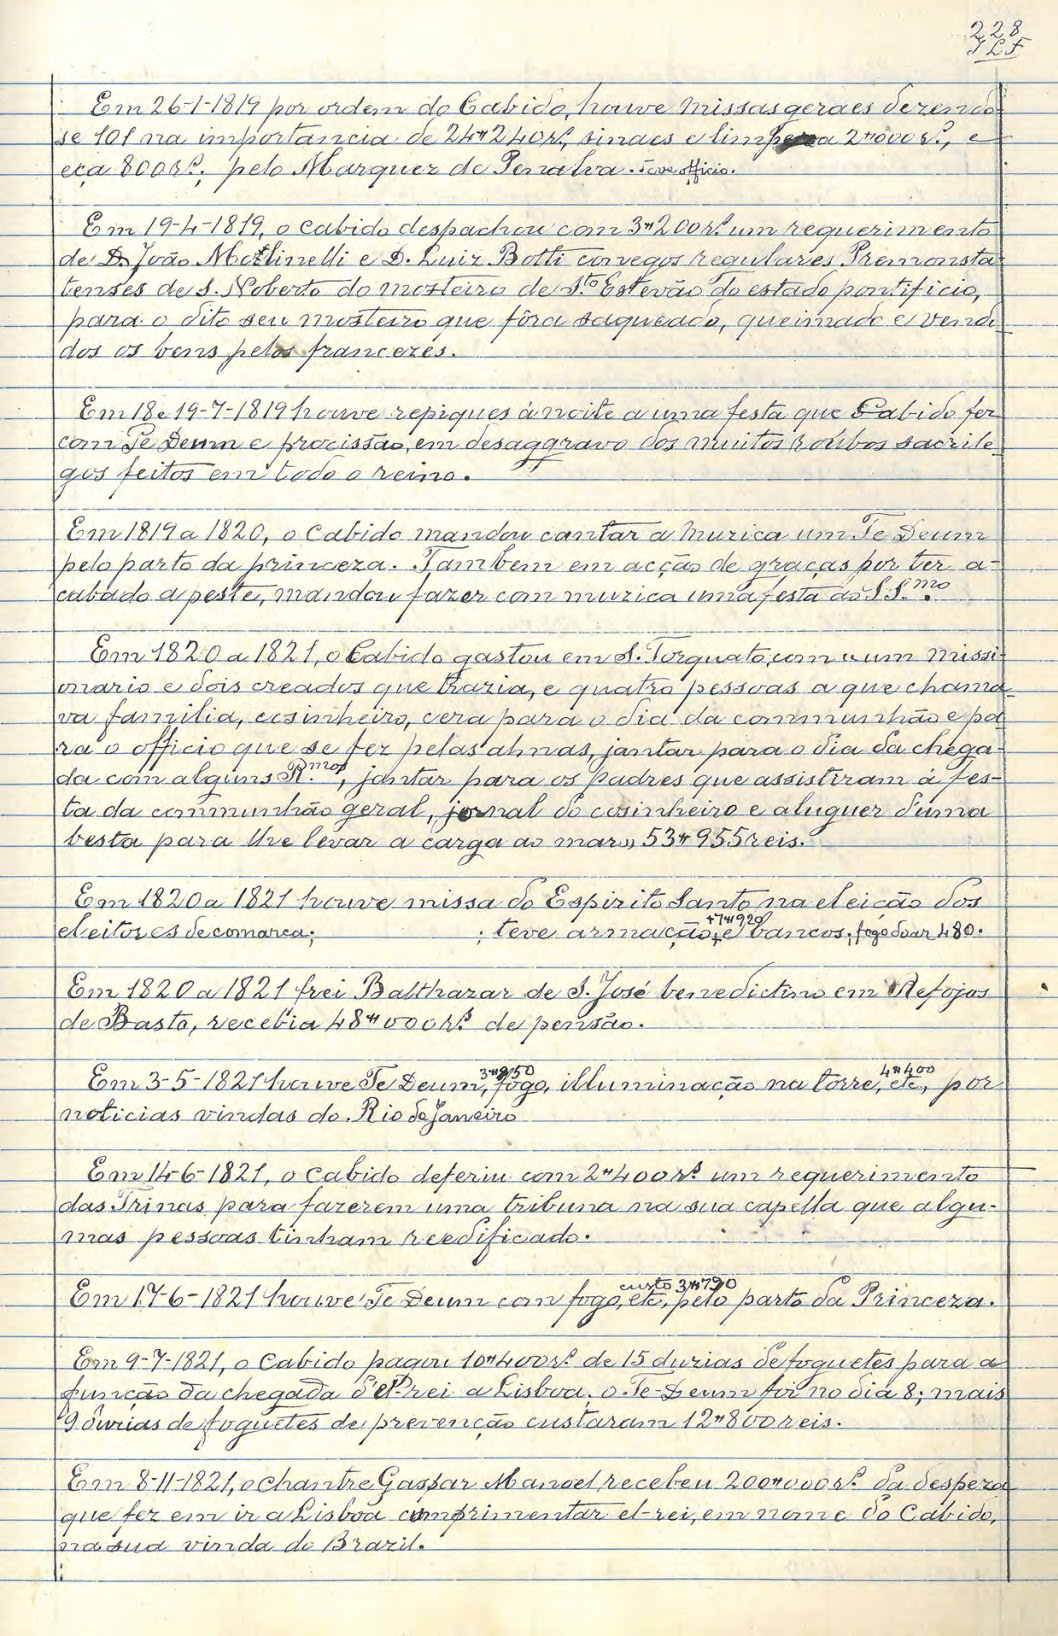 228
JLF
Em 26-1-1819 por ordem do Cabido, houve missas geraes dezendo
se 101 na importancia de 24#240 rs., sinaes e limpeza 2#000 rs., e
eça 800 rs., pelo Marquez de Penalva. teve officio.
Em 19-4-1819, o Cabido despachou com 3#200 rs. um requerimento
de D. João Motlinelli e D. Luiz Botti conegos regulares Premonsta
tenses de S. Noberto do mosteiro de Sto. Estevão do estado pontificio,
para o dito seu mosteiro que fôra saqueado, queimado e vendi
dos os bens pelos francezes.
Em 18 e 19-7-1819 houve repiques á noite a uma festa que Cabido fez
com Te Deum e procissão, em desaggravo dos muitos roubos sacrile
gos feitos em todo o reino.
Em 1819 a 1820, o Cabido mandou cantar a muzica um Te Deum
pelo parto da princeza. Tambem em acção de graças por ter a-
cabado a peste, mandou fazer com muzica uma festa ao SS.mo
Em 1820 a 1821, o Cabido gastou em S. Torquato, com um missi
onario e dois creados que trazia, e quatro pessoas a que chama
va familia, cosinheiro, cera para o dia da communhão e pa
ra o officio que se fez pelas almas, jantar para o dia da chega
da com alguns R.mos, jantar para os padres que assistiram á fes-
ta da communhão geral, jornal do cosinheiro e aluguer d'uma
besta para lhe levar a carga ao mar», 53#955 reis.
Em 1820 a 1821 houve missa do Espirito Santo na eleição dos
eleitores de comarca; ; teve armação +7#920 e bancos; fogo do ar 480.
Em 1820 a 1821 frei Balthazar de S. José benedictino em Refojos
de Basto, recebia 48#000 rs. de pensão.
Em 3-5-1821 houve Te Deum, fogo, 3#950 illuminação na torre, etc, 4#400 por
noticias vindas do Rio de Janeiro
Em 14-6-1821, o Cabido deferiu com 2#400 rs. um requerimento
das Trinas para fazerem uma tribuna na sua capella que algu-
mas pessoas tinham reedificado.
Em 17-6-1821 houve Te Deum com fogo, etc, custo 3#790 pelo parto da Princeza.
Em 9-7-1821, o Cabido pagou 10#400 rs. de 15 duzias de foguetes para a
funcção da chegada d'el-rei a Lisboa; o Te-Deum foi no dia 8; mais
9 duzias de foguetes de prevenção custaram 12#800 reis.
Em 8-11-1821, o chantre Gaspar Manoel recebeu 200#000 rs. da despeza
que fez em ir a Lisboa comprimentar el-rei, em nome do Cabido,
na sua vinda do Brazil.